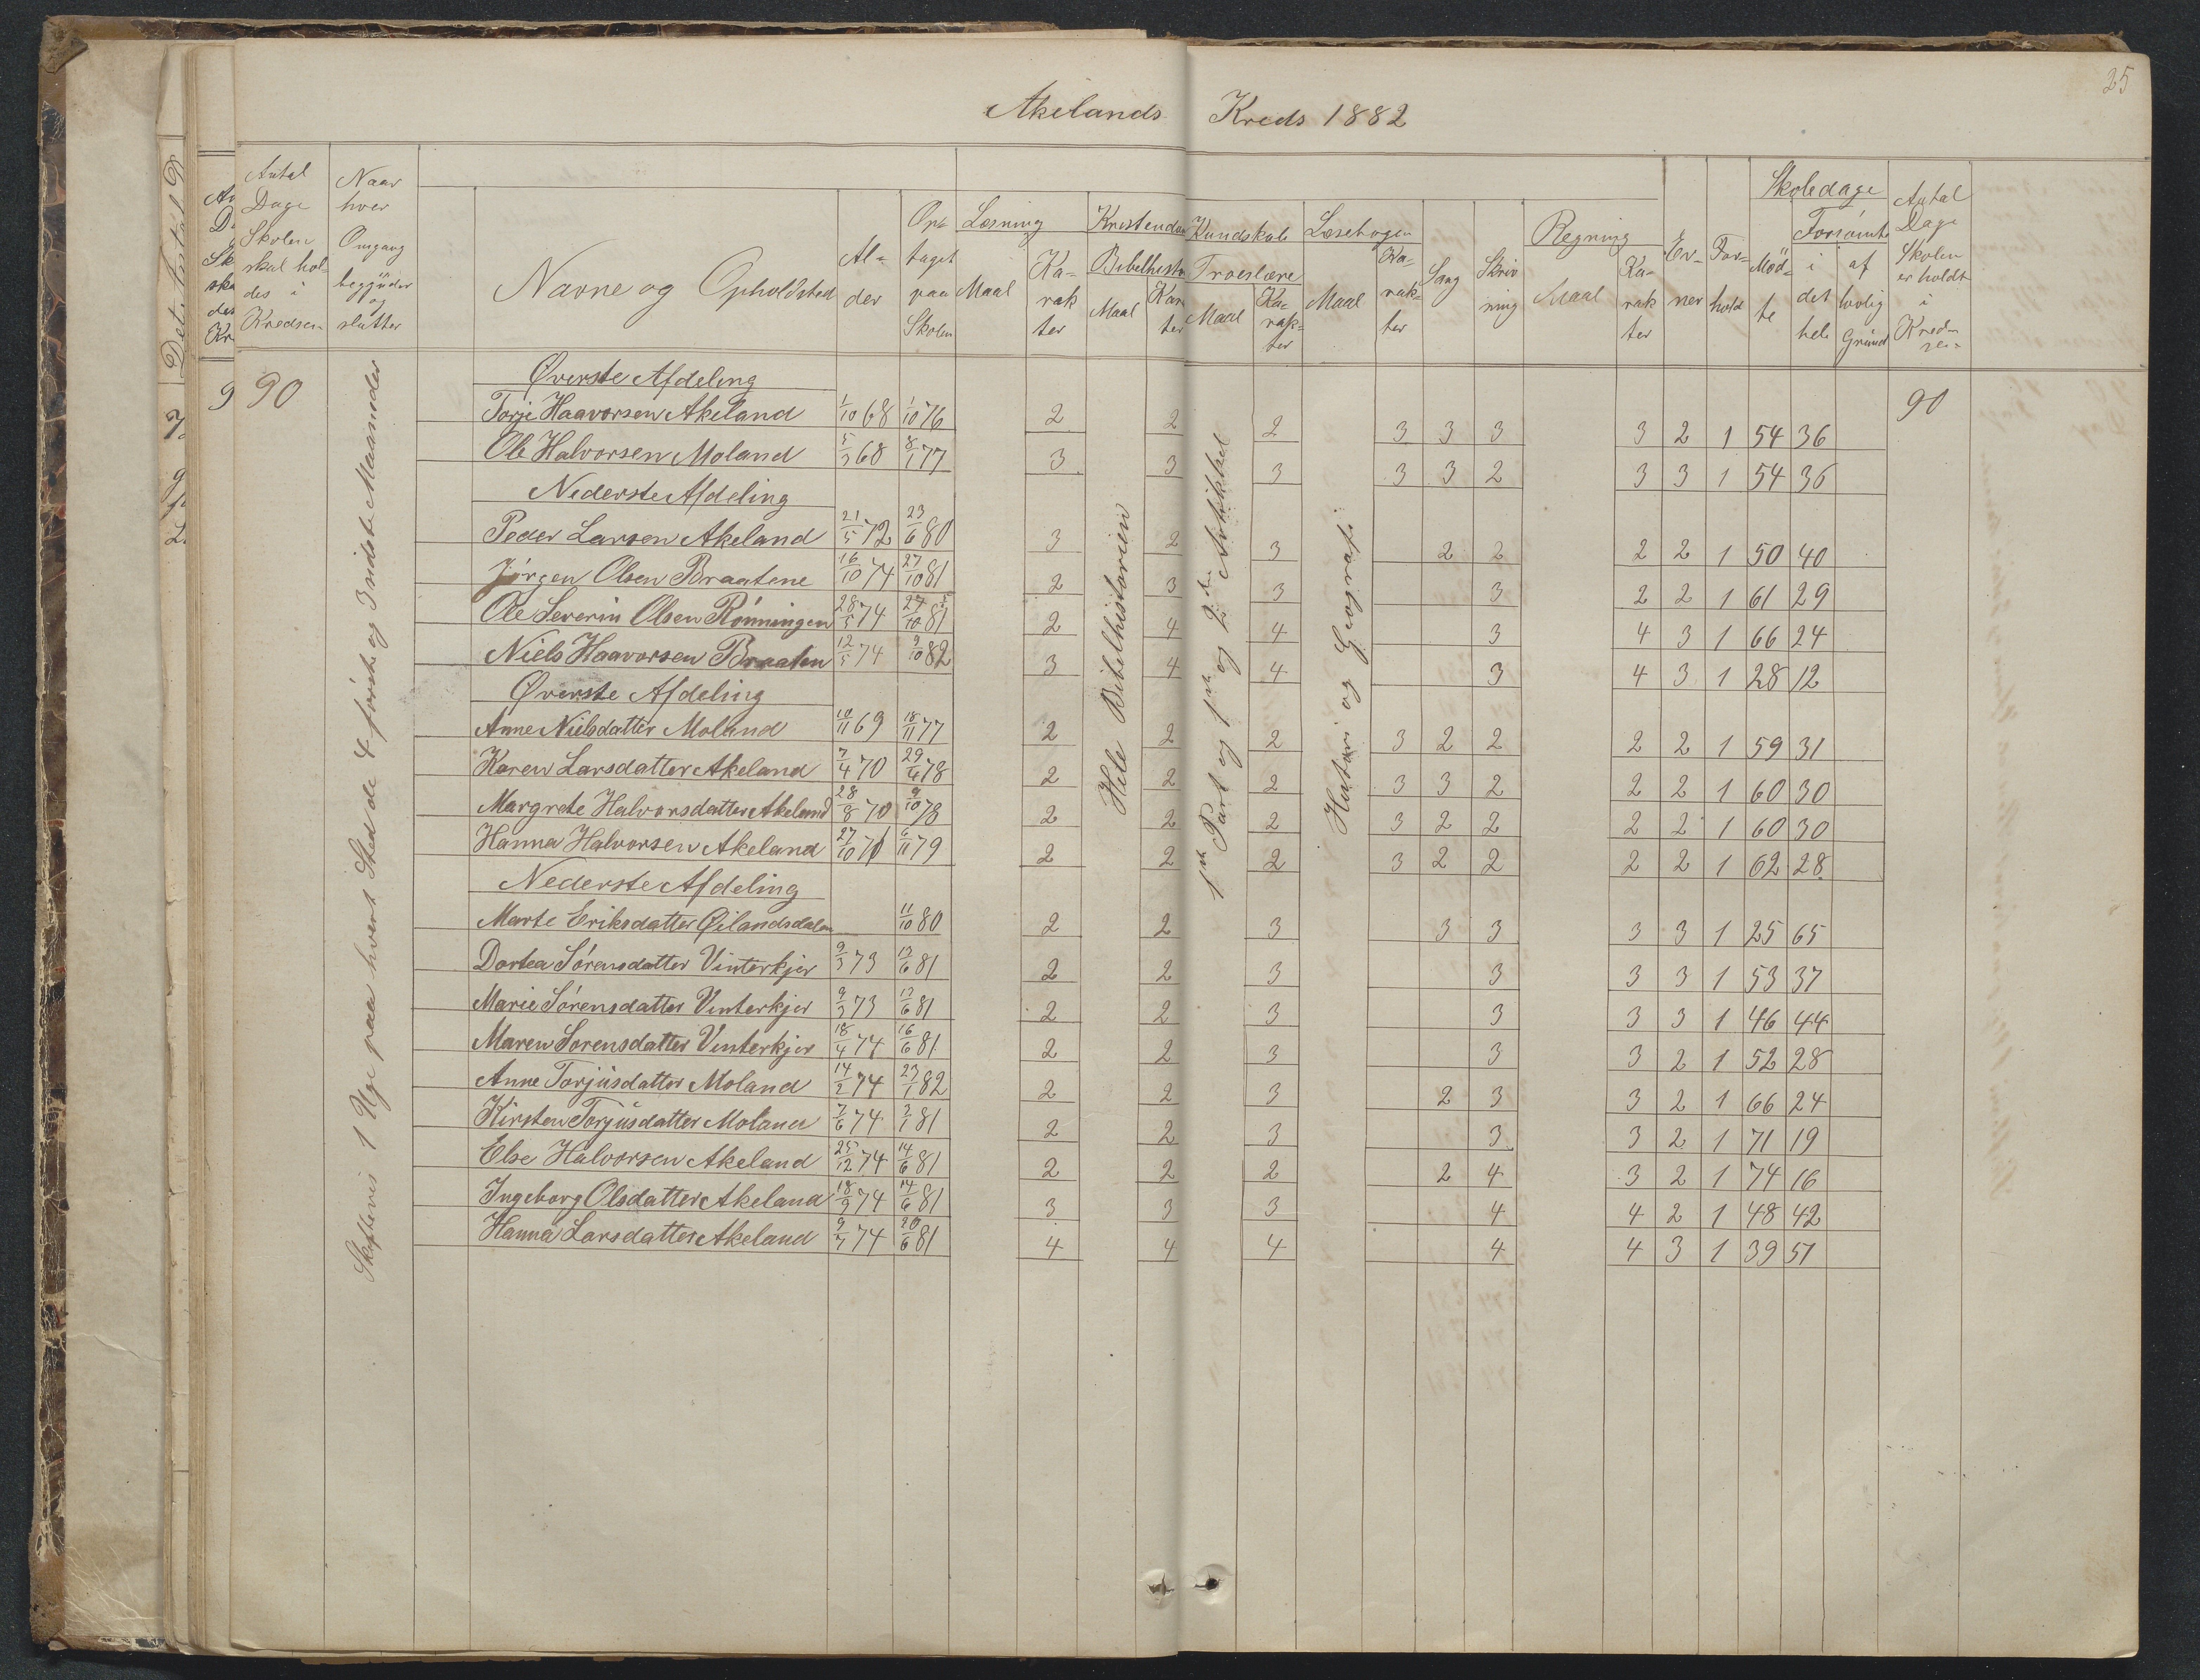 25
Akelands Kreds 1882
Antal Dage Skolen skal holdes i Kredsen
Naar hver Omgang begynder og slutter
Navne og Opholdsted
Alder
Optaget paa Skolen
Læsning
Maal
Karakter
Kristendoms Kundskab
Bibelhisto
Maal
Karakter
Troeslære
Maal
Karakter
Læsebogen
Maal
Karakter
Sang
Skrivning
Regning
Maal
Karakter
Evner
Forhold
Skoledage
Mødte
Forsømte
i det hele
af lovlig Grund
Antal Dage Skolen er holdt i Kredsen
90
Skiftevis 1 Uge paa hvert Sted de 4 første og 3 sidste Maaneder
Hele Bibelhistorien
1ste Part og 1ste og 2den Artikkel
Histori og Geografi
90
Øverste Afdeling
Torje Haavorsen Akeland 1/10 68 1/10 76 2 2 2 3 3 3 3 2 1 54 36
Ole Halvorsen Moland 5/3 68 8/1 77 3 3 3 3 3 2 3 3 1 54 36
Nederste Afdeling
Peder Larsen Akeland 21/5 72 23/6 80 3 2 3 2 2 2 2 1 50 40
Jørgen Olsen Braatene 16/10 74 27/10 81 2 3 3 3 2 2 1 61 29
Ole Severin Olsen Rønningen 28/5 74 27/10 81 2 4 4 3 4 3 1 66 24
Niels Haavorsen Braaten 12/5 74 9/10 82 3 4 4 3 4 3 1 28 12
Øverste Afdeling
Anne Nielsdatter Moland 10/11 69 18/11 77 2 2 2 3 2 2 2 2 1 59 31
Karen Larsdatter Akeland 7/4 70 29/4 78 2 2 2 3 3 2 2 2 1 60 30
Margrete Halvorsdatter Akeland 28/8 70 9/10 78 2 2 2 3 2 2 2 2 1 60 30
Hanna Halvorsen Akeland 27/10 71 6/11 79 2 2 2 3 2 2 2 2 1 62 28
Nederste Afdeling
Marte Eriksdatter Øilandsdalen 11/10 80 2 2 3 3 3 3 3 1 25 65
Dortea Sørensdatter Vinterkjær 9/3 73 13/6 81 2 2 3 3 3 3 1 53 37
Marie Sørensdatter Vinterkjær 9/3 73 13/6 81 2 2 3 3 3 3 1 46 44
Maren Sørensdatter Vinterkjær 18/4 74 16/6 81 2 2 3 3 3 2 1 52 28
Anne Torjusdatter Moland 14/2 74 23/1 82 2 2 3 2 3 3 2 1 66 24
Kirsten Torjusdatter Moland 7/6 74 3/1 81 2 2 3 3 3 2 1 71 19
Else Halvorsen Akeland 25/12 74 14/6 81 2 2 2 2 4 3 2 1 74 16
Ingeborg Olsdatter Akeland 18/9 74 14/6 81 3 3 3 4 4 2 1 48 42
Hanna Larsdatter Akeland 9/7 74 20/6 81 4 4 4 4 4 3 1 39 51